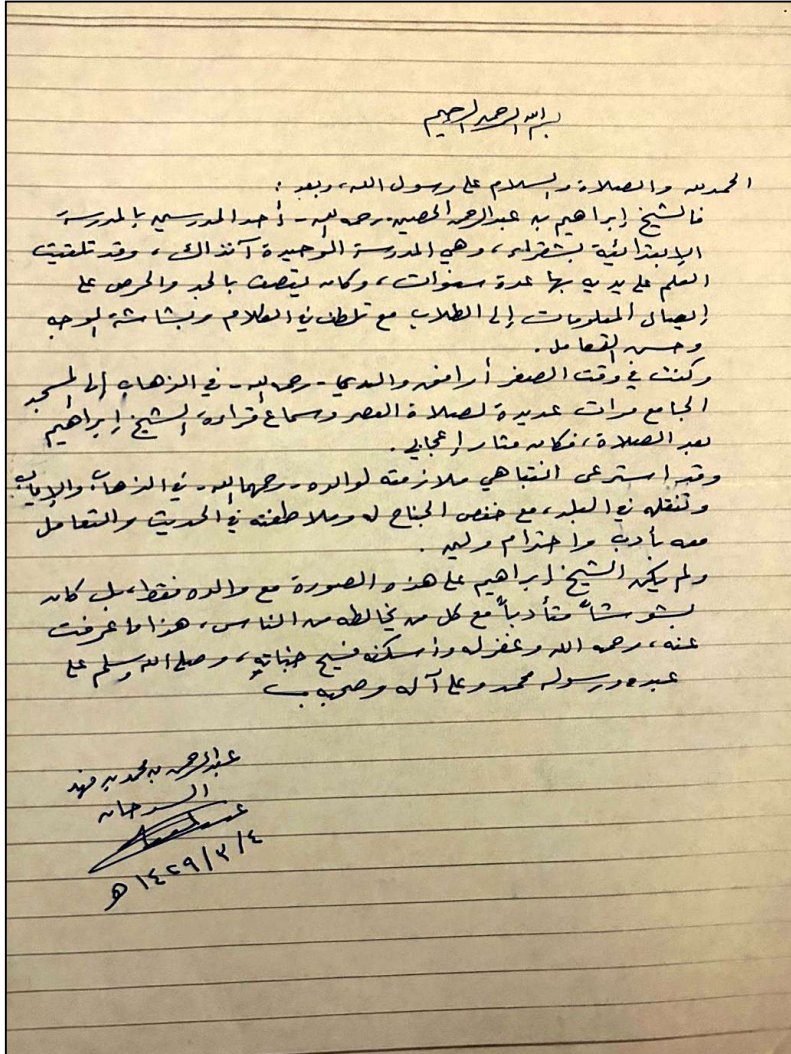 بسم الله الرحمن الرحيم
الحمد لله والصلاة والسلام على رسول الله، وبعد :
فالشيخ إبراهيم بن عبدالرحمن الحصين - رحمه الله - أحد المدرسين بالمدرسة
الإبتدائية بشقراء، وهي المدرسة الوحيدة آنذاك، وقد تلقيت
العلم على يديه بها عدة سنوات، وكان يتصف بالجد والحرص على
إيصال المعلومات إلى الطلاب مع تلطف في الكلام وبشاشة الوجه
وحسن التعامل.
وكنت في وقت الصغر أرافق والدي - رحمه الله - في الذهاب إلى المسجد
الجامع مرات عديدة لصلاة العصر وسماع قراءة الشيخ إبراهيم
بعد الصلاة، فكان مثار إعجابي.
وقد إسترعى انتباهي ملازمته لوالده - رحمهما الله - في الذهاب والإياب
وتنقله في البلد، مع خفض الجناح له وملاطفته في الحديث والتعامل
معه بأدب واحترام ولين .
ولم يكن الشيخ إبراهيم على هذه الصورة مع والده فقط، بل كان
بشوشاً متأدباً مع كل من يخالطه من الناس، هذا ما عرفت
عنه، رحمه الله وغفر له وأسكنه فسيح جناته، وصلى الله وسلم على
عبده ورسوله محمد وعلى آله وصحبه
عبدالرحمن بن محمد بن فهد
السدحان
١٤٢٩/٣/٤ هـ